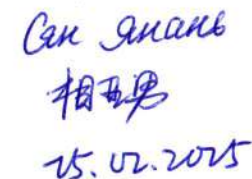 Сян Янань
相亚男
25.02.2025